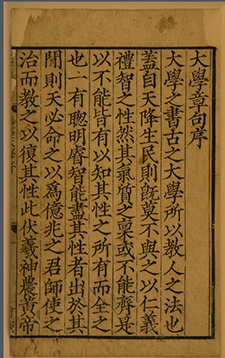 大學章句序
大學之書古之大學所以教人之法也
蓋自天降生民則旣莫不與之以仁義
禮智之性然其氣質之稟或不能齊是
以不能皆有以知其性之所有而全之
也一有聰明睿智能盡其性者出於其
閒則天必命之以爲億兆之君師使之
治而教之以復其性此伏羲神農黃帝